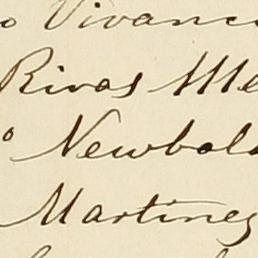 o Vivanc
Rivas Me
o Newbold
Martinez